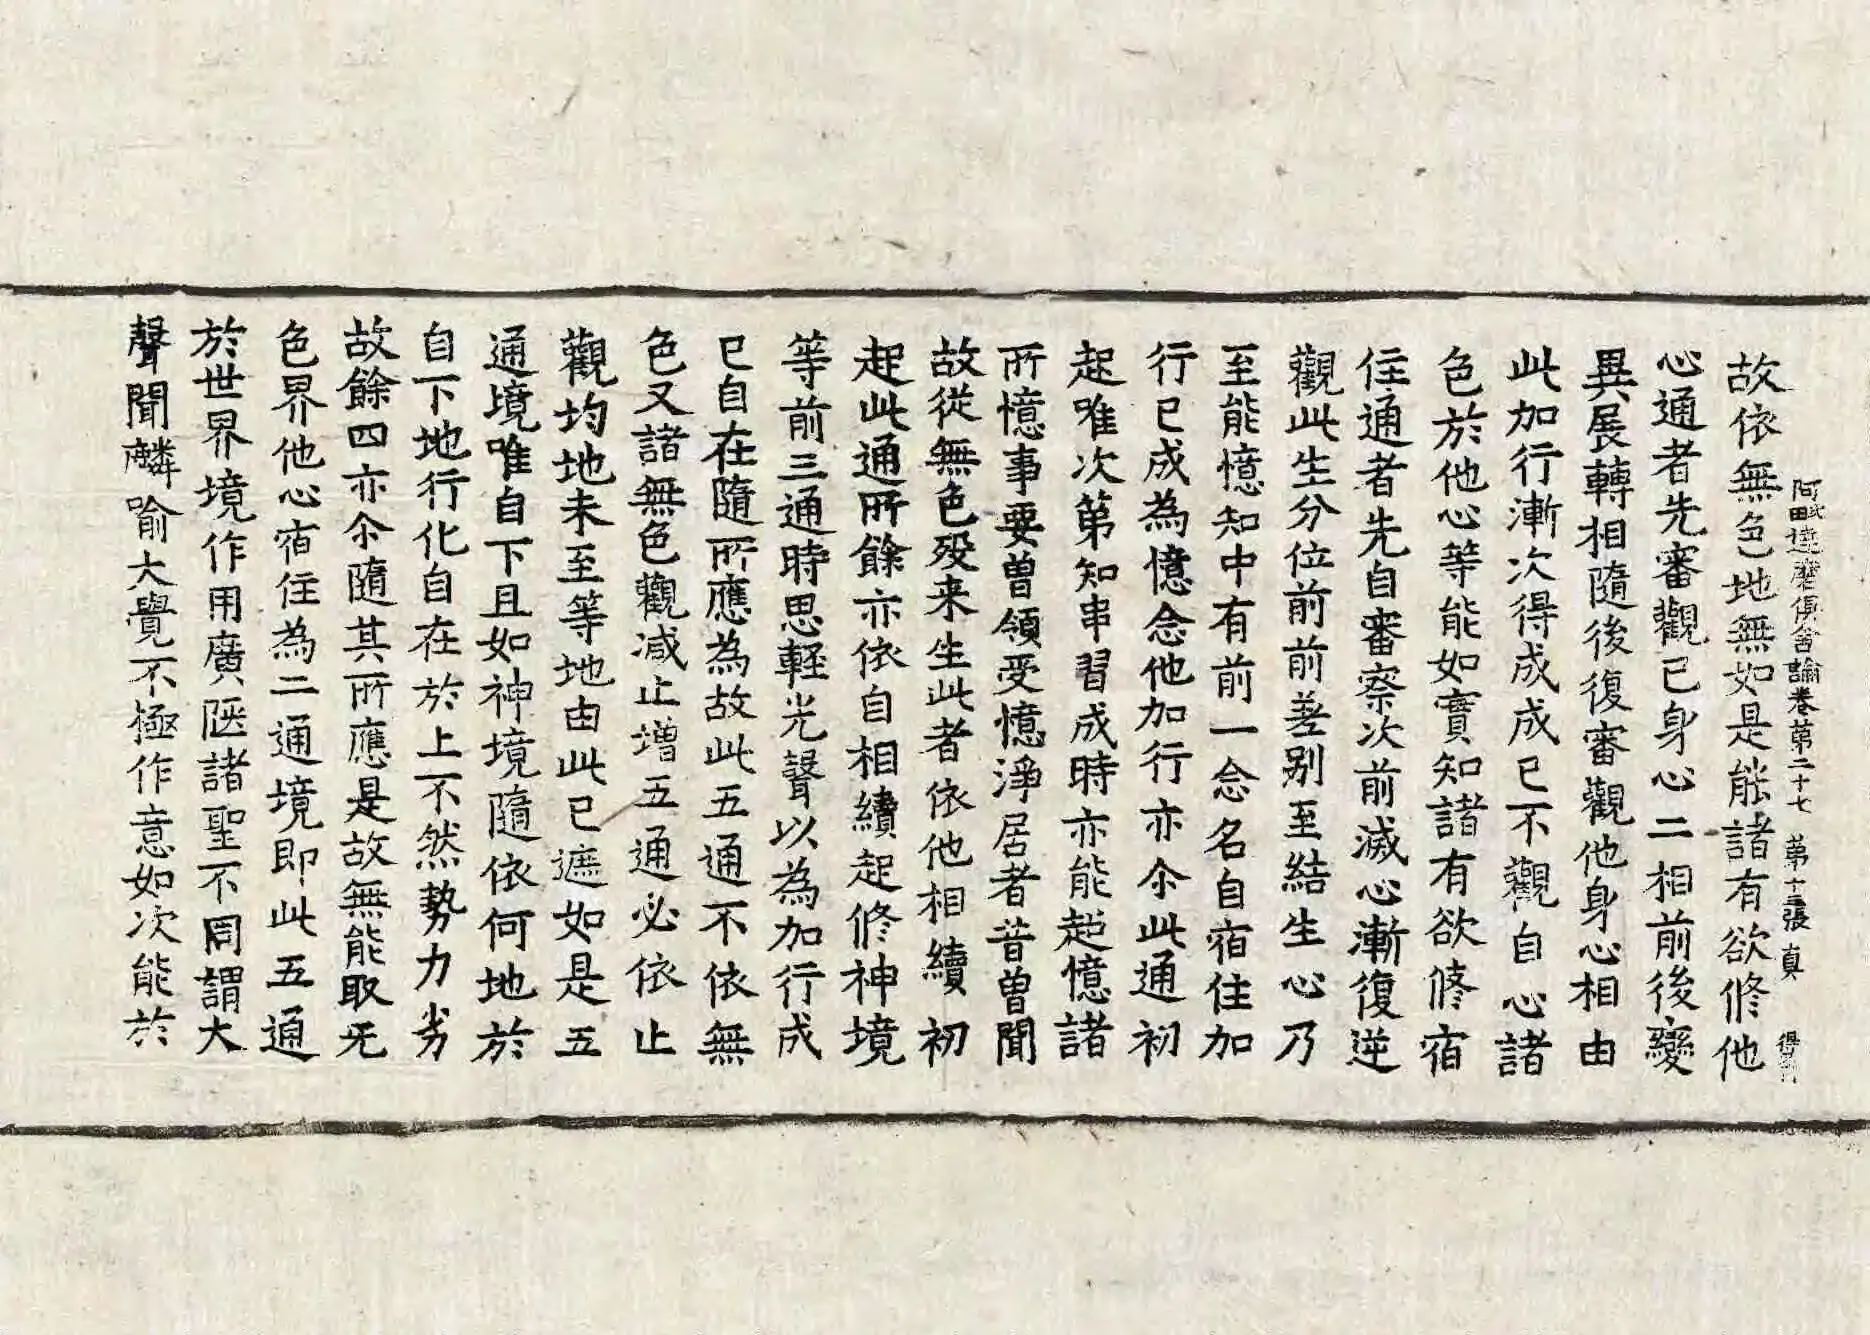 阿毗達磨俱舍論卷第二十七 第十三張 真
故依無色地無如是能諸有欲修他
心通者先審觀已身心二相前後變
異展轉相隨後復審觀他身心相由
此加行漸次得成成已不觀自心諸
色於他心等能如實知諸有欲修宿
住通者先自審察次前滅心漸復逆
觀此生分位前前差别至結生心乃
至能憶知中有前一念名自宿住加
行已成為憶念他加行亦尒此通初
起唯次苐知串習成時亦能超憶諸
所憶事要曽領受憶淨居者昔曽聞
故從無色歿来生此者依他相續初
起此通所餘亦依自相續起修神境
等前三通時思輕光聲以為加行成
已自在隨所應為故此五通不依無
色又諸無色觀减止增五通必依止
觀均地未至等地由此已遮如是五
通境唯自下且如神境隨依何地於
自下地行化自在於上不然勢力劣
故餘四亦尒隨其所應是故無能取无
色界他心宿住為二通境即此五通
於世界境作用廣陜諸聖不同謂大
聲聞麟喻大覺不極作意如次能於